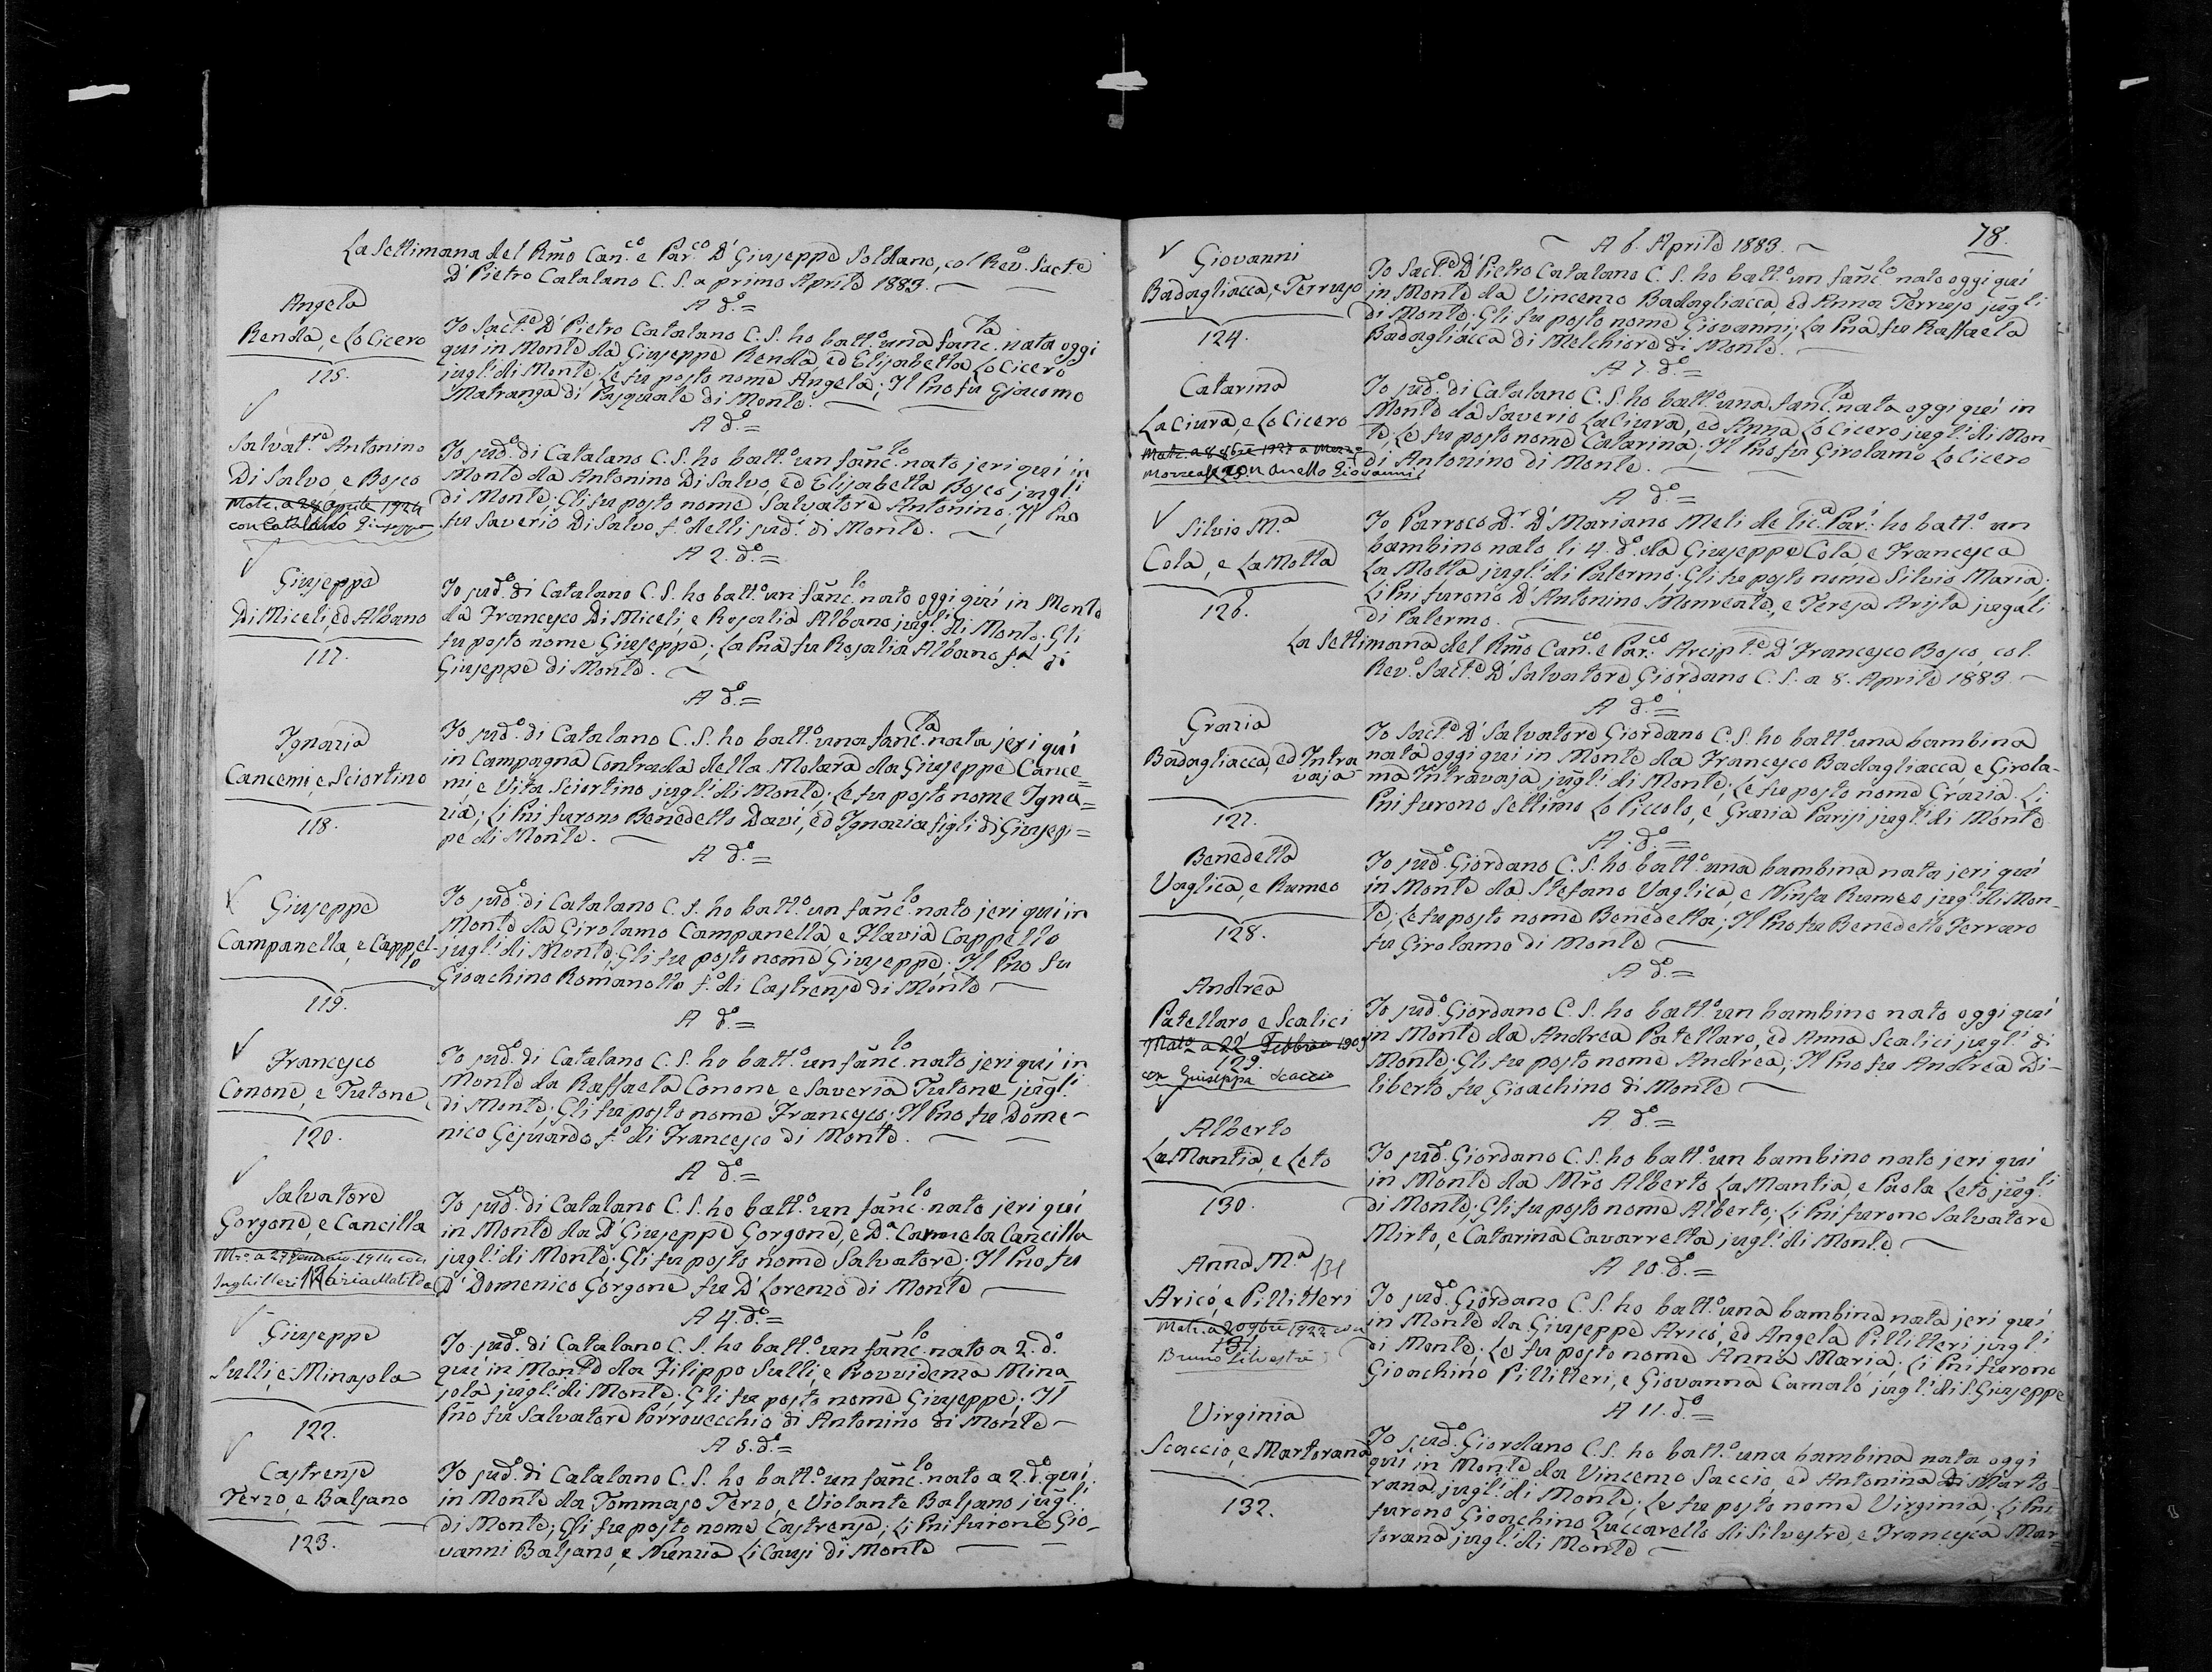 La Settimana del Rmo Can.co e Par.co D. Giuseppe Soldano, col Rev.o Sact.e
D. Pietro Catalano C. S. a primo Aprile 1883.
A d.o =
Angela
Renda, e Lo Cicero
115.
Io Sact.e D. Pietro Catalano C. S. ho batt.o una fanc.ta nata oggi
quì in Monte da Giuseppe Renda, ed Elisabetta Lo Cicero
jugl.i di Monte; Le fu posto nome Angela; Il Pno fu Giacomo
Matranga di Pasquale di Monte.
A d.o =
Salvat.re Antonino
Di Salvo, e Bosco
Matr. a 28 Aprile 1924
con Catalano Giuseppa
Io sud.o di Catalano C. S. ho batt.o un fanc.lo nato jeri quì in
Monte da Antonino Di Salvo, ed Elisabetta Bosco jugl.i
di Monte; Gli fu posto nome Salvatore Antonino; Il Pno
fu Saverio Di Salvo f.o delli sud.i di Monte.
A 2. d.o =
Giuseppe
Di Miceli, ed Albano
117.
Io sud.o di Catalano C. S. ho batt.o un fanc.lo nato oggi quì in Monte
da Francesco Di Miceli, e Rosalia Albano jugl.i di Monte. Gli
fu posto nome Giuseppe; La Pna fu Rosalia Albano f.a di
Giuseppe di Monte.
A d.o =
Ignazia
Cancemi, e Sciortino
118.
Io sud.o di Catalano C. S. ho batt.o una fanc.ta nata jeri quì
in Campagna Contrada della Molara da Giuseppe Cance=
mi e Vita Sciortino jugl.i di Monte; Le fu posto nome Igna=
zia; Li Pni furono Benedetto Davì, ed Ignazia figli di Giusep=
pe di Monte.
A d.o =
Giuseppe
Campanella, e Cappel-
lo
119.
Io sud.o di Catalano C. S. ho batt.o un fanc.lo nato jeri quì in
Monte da Girolamo Campanella, e Flavia Cappello
jugl.i di Monte; Gli fu posto nome Giuseppe; Il Pno fu
Gioachino Romanotto f.o di Castrense di Monte
A d.o =
Francesco
Conone, e Tutone
120.
Io sud.o di Catalano C. S. ho batt.o un fanc.lo nato jeri quì in
Monte da Raffaela Conone e Saveria Tutone jugl.i
di Monte; Gli fu posto nome Francesco; Il Pno fu Dome-
nico Gesuardo f.o di Francesco di Monte.
A d.o =
Salvatore
Gorgone, e Cancilla
Mro. a 27 Gennaro 1914 con
Inghilleri Maria Matilde
Io sud.o di Catalano C. S. ho batt.o un fanc.lo nato jeri quì
in Monte da D. Giuseppe Gorgone, e D.a Carmela Cancilla
jugl.i di Monte; Gli fu posto nome Salvatore; Il Pno fu
D. Domenico Gorgone fu D. Lorenzo di Monte
A 4. d.o =
Giuseppe
Sulli, e Minasola
122.
Io sud.o di Catalano C. S. ho batt.o un fanc.lo nato a 2. d.o
quì in Monte da Filippo Sulli, e Provvidenza Mina
sola jugl.i di Monte; Gli fu posto nome Giuseppe; Il
Pno fu Salvatore Porrovecchio di Antonino di Monte
A 5. d.o =
Castrense
Terzo, e Balsano
123.
Io sud.o di Catalano C. S. ho batt.o un fanc.lo nato a 2. d.o quì
in Monte da Tommaso Terzo, e Violante Balsano jugl.i
di Monte; Gli fu posto nome Castrense; Li Pni furono Gio-
vanni Balsano, e Nunzia Li Causi di Monte
78.
A 6. Aprile 1883.
Giovanni
Badagliacca, e Terruso
124.
Io Sact.e D. Pietro Catalano C. S. ho batt.o un fanc.lo nato oggi quì
in Monte da Vincenzo Badagliacca, ed Anna Terruso jugl.i
di Monte. Gli fu posto nome Giovanni; La Pna fu Raffaela
Badagliacca di Melchiore di Monte.
A 7. d.o =
Catarina
La Ciura, e Lo Cicero
Matr. a 8 8bre 1927 a
Morreale con Anello Giovanni
125.
Io sud.o di Catalano C. S. ho batt.o una fanc.ta nata oggi quì in
Monte da Saverio La Ciura, ed Anna Lo Cicero jugl.i di Mon-
te; Le fu posto nome Catarina; Il Pno fu Girolamo Lo Cicero
di Antonino di Monte.
A d.o =
Silvio M.a
Cola, e La Motta
126.
Io Parroco D.r D. Mariano Meli de lic.a Par.i ho batt.o un
bambino nato li 4. d.o da Giuseppe Cola, e Francesca
La Motta jugl.i di Palermo; Gli fu posto nome Silvio Maria;
Li Pni furono D. Antonino Monreale, e Teresa Arista jugali
di Palermo.
La Settimana del Rmo Can.co e Par.co Arcipt.e D. Francesco Bosco, col
Rev.o Sact.e D. Salvatore Giordano C. S. a 8. Aprile 1883.
A d.o =
Grazia
Badagliacca, ed Intra
vaja
127.
Io Sact.e D. Salvatore Giordano C. S. ho batt.o una bambina
nata oggi quì in Monte da Francesco Badagliacca, e Girola-
ma Intravaja jugl.i di Monte; Le fu posto nome Grazia. Li
Pni furono Settimo Lo Piccolo, e Grazia Parisi jugl.i di Monte
A d.o =
Benedetta
Vaglica, e Rumeo
128.
Io sud.o Giordano C. S. ho batt.o una bambina nata jeri quì
in Monte da Stefano Vaglica, e Ninfa Rumeo jugl.i di Mon-
te; Le fu posto nome Benedetta; Il Pno fu Benedetto Ferraro
fu Girolamo di Monte
A d.o =
Andrea
Patellaro, e Scalici
Matr. a 22 Febbraio 1909
129.
con Giuseppa Scaccio
Io sud.o Giordano C. S. ho batt.o un bambino nato oggi quì
in Monte da Andrea Patellaro, ed Anna Scalici jugl.i di
Monte; Gli fu posto nome Andrea; Il Pno fu Andrea Di-
liberto fu Gioachino di Monte
A d.o =
Alberto
La Mantia, e Leto
130.
Io sud.o Giordano C. S. ho batt.o un bambino nato jeri quì
in Monte da Mro Alberto La Mantia, e Paola Leto jugl.i
di Monte; Gli fu posto nome Alberto; Li Pni furono Salvatore
Mirto, e Catarina Cavarretta jugl.i di Monte
A 10. d.o =
Anna M.a 131
Aricò, e Pillitteri
Matr. a 2 9bre 1922 con
131.
Bruno Silvestre
Io sud.o Giordano C. S. ho batt.o una bambina nata jeri quì
in Monte da Giuseppe Aricò, ed Angela Pillitteri jugl.i
di Monte; Le fu posto nome Anna Maria; Li Pni furono
Gioachino Pillitteri, e Giovanna Camalò jugl.i di S. Giuseppe
A 11. d.o =
Virginia
Scaccio, e Martorana
132.
Io sud.o Giordano C. S. ho batt.o una bambina nata oggi
quì in Monte da Vincenzo Saccio, ed Antonina Marto-
rana jugl.i di Monte; Le fu posto nome Virginia; Li Pni
furono Gioachino Zuccarello di Silvestre, e Francesca Mar=
torana jugl.i di Monte